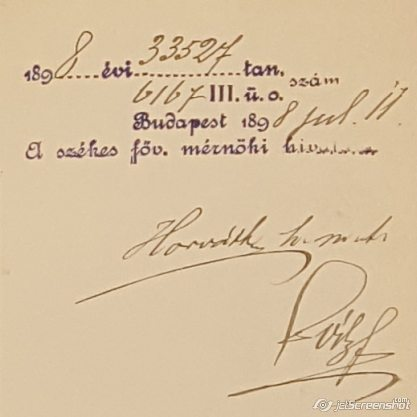 1898 évi 33527 tan. szám
6167 III. ü. o.
Budapest 1898 jul. 11
A székes főv. mérnöki hivatal
Horváth
jetScreenshot.com